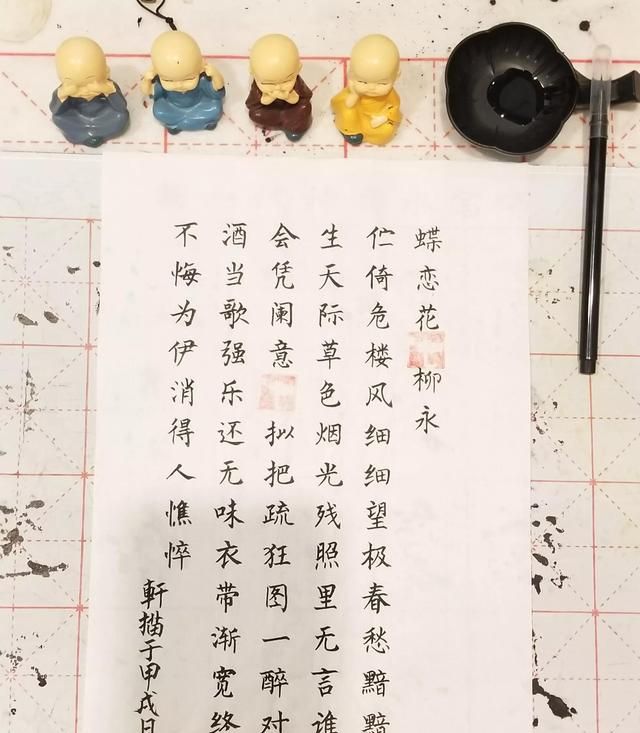 蝶恋花柳永
伫倚危楼风细细望极春愁黯黯
生天际草色烟光残照里无言谁
会凭阑意拟把疏狂图一醉对
酒当歌强乐还无味衣带渐宽终
不悔为伊消得人憔悴
軒描于甲戌日